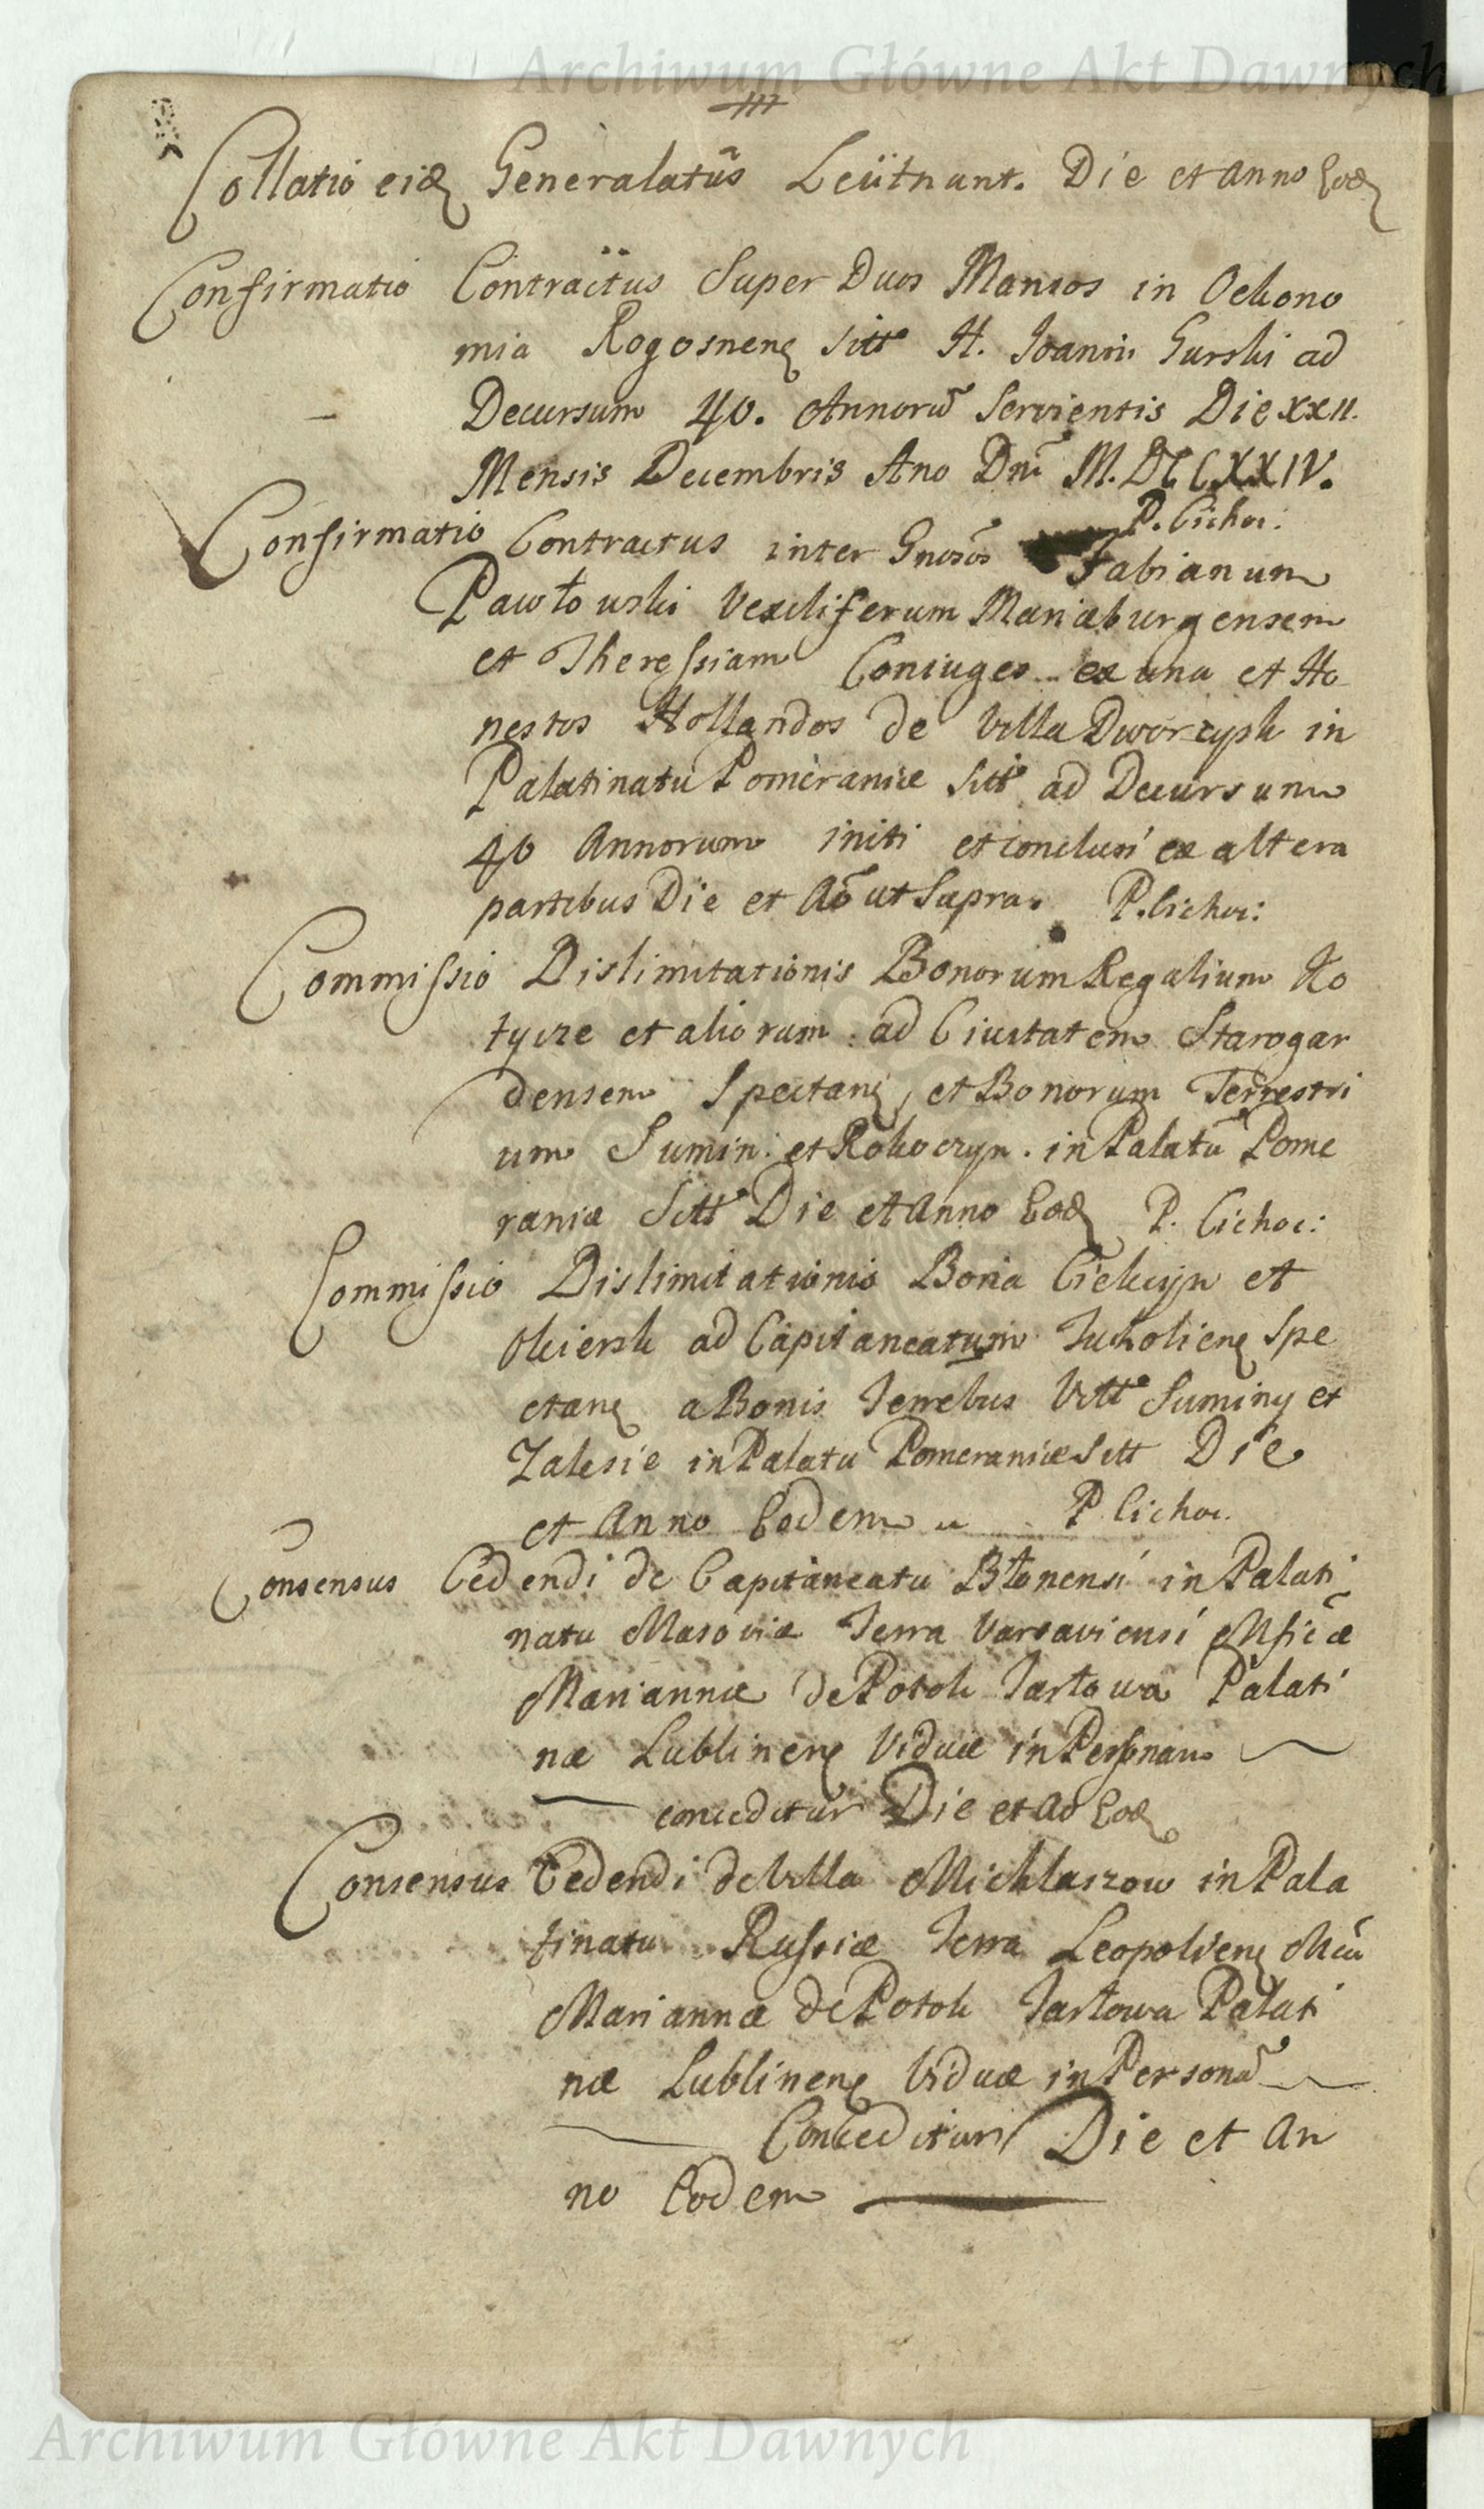 Archiwum Główne Akt Dawnych
Collatio eid Generalatûs Leütnant. Die et Anno Eod
Confirmatio Contractus Super Duos Mansos in Oekono
mia Rogosnens sitt H. Joannis Gurski ad
Decursum 40. Annorũ Servientis Die XXII.
Mensis Decembris Ano Dni M.DCCXXIV.
P. Cichoc:
Confirmatio Contractus inter Gnosos Fabianum
Pawłouski Vexiliferum Mariæburgensem
et Theressiam Coniuges ex una et Ho
nestos Hollandos de Villa Dworzysk in
Palatinatu Pomeraniæ Sitt ad Decursum
40 Annorum initi et conclusi ex altera
partibus Die et Aõ ut Supra. P. Cichoc:
Commissio Dislimitationis Bonorum Regalium Ko
tycze et aliorum ad Civitatem Starogar
densem Spectan, et Bonorum Terrestri
um Sumin: et Kokoczyn. in Palatũ Pome
raniæ Sitt Die et Anno Eod P. Cichoc:
Commissio Dislimitationis Bona Ciekcyn et
Okiersk ad Capitaneatum Tucholiens Spe
ctans a Bonis Terrebus Vill Suminy et
Zalesie in Palatu Pomeraniæ Sitt Die
et Anno Eodem P. Cichoc.
Consensus Cedendi de Capitaneatu Błonensi in Palati
natu Masoviæ Terra Varsaviensi Mficæ
Mariannæ de Potok Tarłowa Palati
næ Lublinens Viduæ in Personam
conceditur Die et Aõ Eod
Consensus Cedendi de Villa Micklaszow in Pala
tinatu Russiæ Terra Leopoliens Mcæ
Marianna de Potok Tarłowa Palati
næ Lublinens Viduæ in Personã
Conceditur Die et An
no Eodem
Archiwum Główne Akt Dawnych